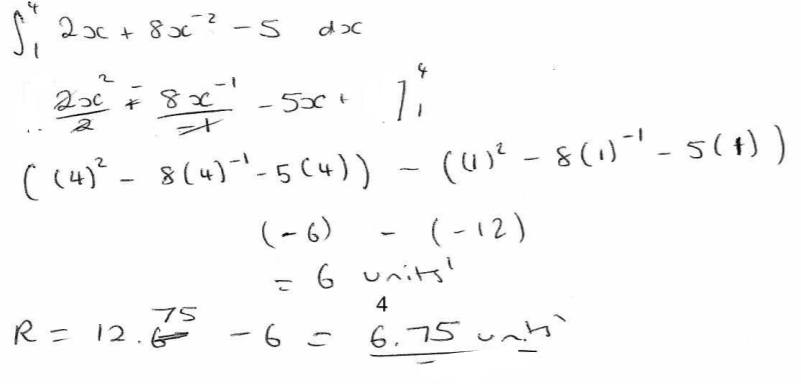 ∫₁⁴ 2x + 8x⁻² - 5 dx
2x²/2 - 8x⁻¹/-1 - 5x + ]₁⁴
((4)² - 8(4)⁻¹ - 5(4)) - ((1)² - 8(1)⁻¹ - 5(1))
(-6) - (-12)
= 6 units'
4
R = 12.75 - 6 = 6.75 units'